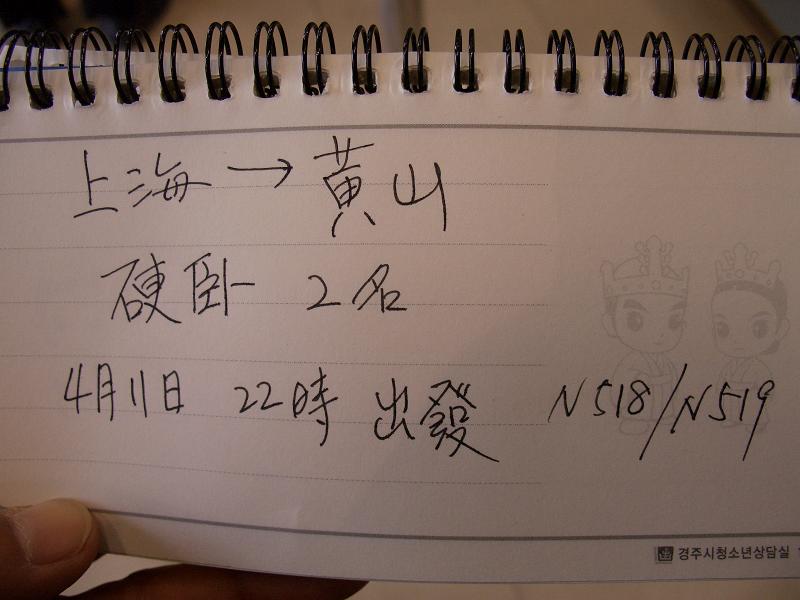 上海→黃山
硬卧 2名
4月11日 22時 出發 N518/N519
경주시청소년상담실